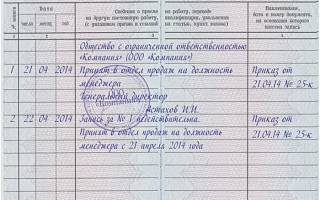 Дата
Сведения о приеме на
другую постоянную работу,
квалификации, увольнении
(с указанием причин и ссылкой
на статью, пункт закона)
Наименование,
дата и номер документа,
на основании которого
внесена запись
число
месяц
год
1
2
3
4
Общество с ограниченной ответственностью
«Компания» (ООО «Компания»)
1 21 04 2014 Принят в отдел продаж на должность Приказ от
менеджера 21.04.14 № 25-к
Генеральный директор
Астахов И.И.
2 22 04 2014 Запись за № 1 недействительна. Приказ от
Принят в отдел продаж на должность 21.04.14 № 25-к
менеджера с 21 апреля 2014 года